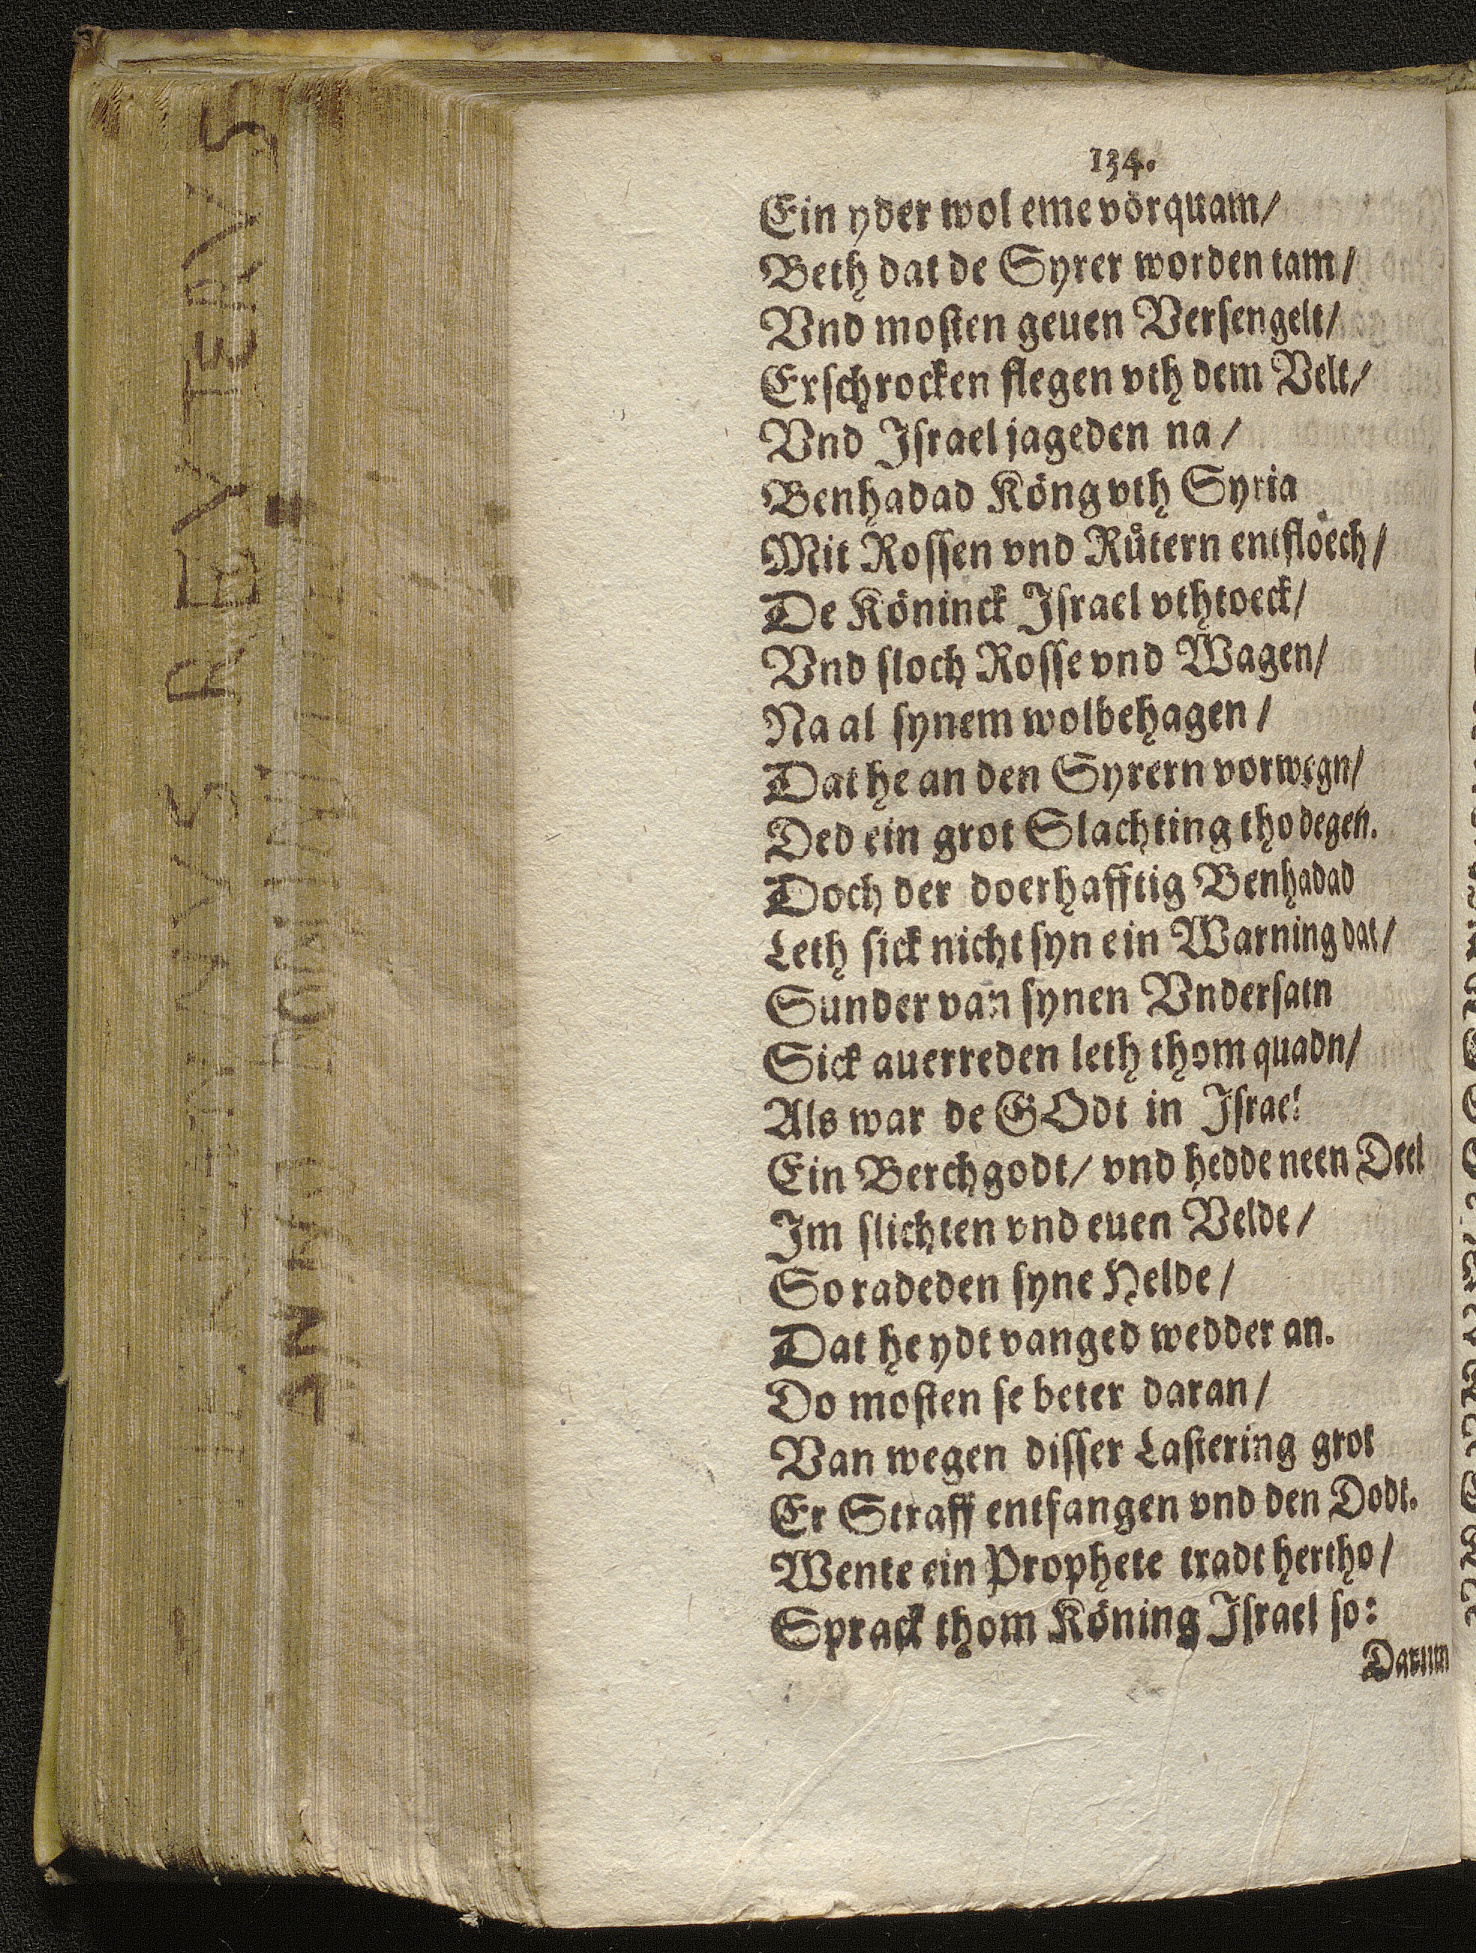 134.
Ein yder wol eme vörquam/
Beth dat de Syrer worden tam/
Vnd mosten geuen Versengelt/
Erschrocken flegen vth dem Velt/
Vnd Israel jageden na/
Benhadad Köng vth Syria
Mit Rossen vnd Rütern entfloech/
De Köninck Israel vthtoeck/
Vnd sloch Rosse vnd Wagen/
Na al synem wolbehagen/
Dat he an den Syrern vorwegn/
Ded ein grot Slachting tho degen.
Doch der doerhafftig Benhadad
Leth sick nicht syn ein Warning dat/
Sunder van synen Vndersatn
Sick auerreden leth thom quadn/
Als war de GOdt in Israel
Ein Berchgodt/ vnd hedde neen Deel
Im slichten vnd euen Velde/
So radeden syne Helde/
Dat he ydt vanged wedder an.
Do mosten se beter daran/
Van wegen disser Lastering grot
Er Straff entfangen vnd den Dodt.
Wente ein Prophete tradt hertho/
Sprack thom Köning Israel so:
Darum
REVTERVS
ANNO DOMINI